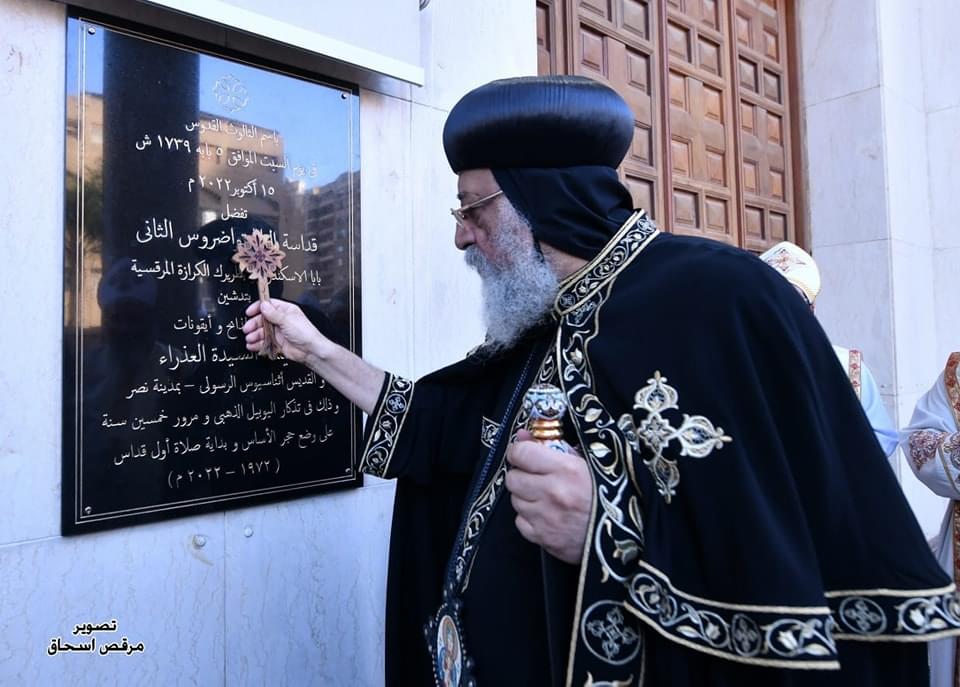 باسم الثالوث القدوس
في يوم السبت الموافق ٥ بابه ١٧٣٩ ش
١٥ أكتوبر ٢٠٢٢ م
تفضل
قداسة اضروس الثانى
بابا الاسكند الكرازة المرقسية
بتدشين
و أيقونات
السيدة العذراء
و القديس أثناسيوس الرسولى - بمدينة نصر
وذلك فى تذكار اليوبيل الذهبى و مرور خمسين سنة
على وضع حجر الأساس و بداية صلاة أول قداس
( ١٩٧٢ - ٢٠٢٢ م )
تصوير
مرقص اسحاق